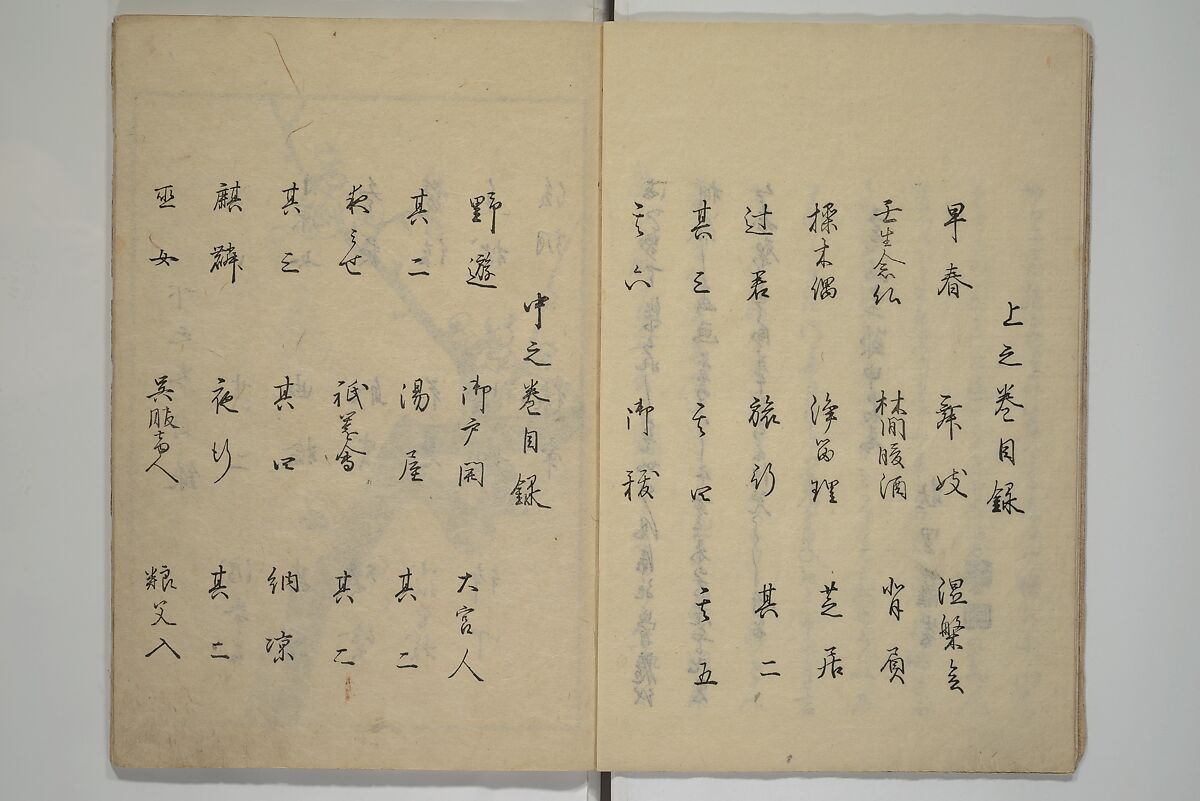 上之巻目録
早春 舞妓 温盤会
壬生念仏 林間暖酒 背負
操木偶 浄留理 芝居
过君 旅行 其二
其三 其四 其五
其六 御秡
中之巻目録
野遊 御戸開 大宮人
其二 湯屋 其二
夜みせ 祇薗會 其二
其三 其四 納凉
麒麟 夜行 其二
巫女 呉服商人 粮父入